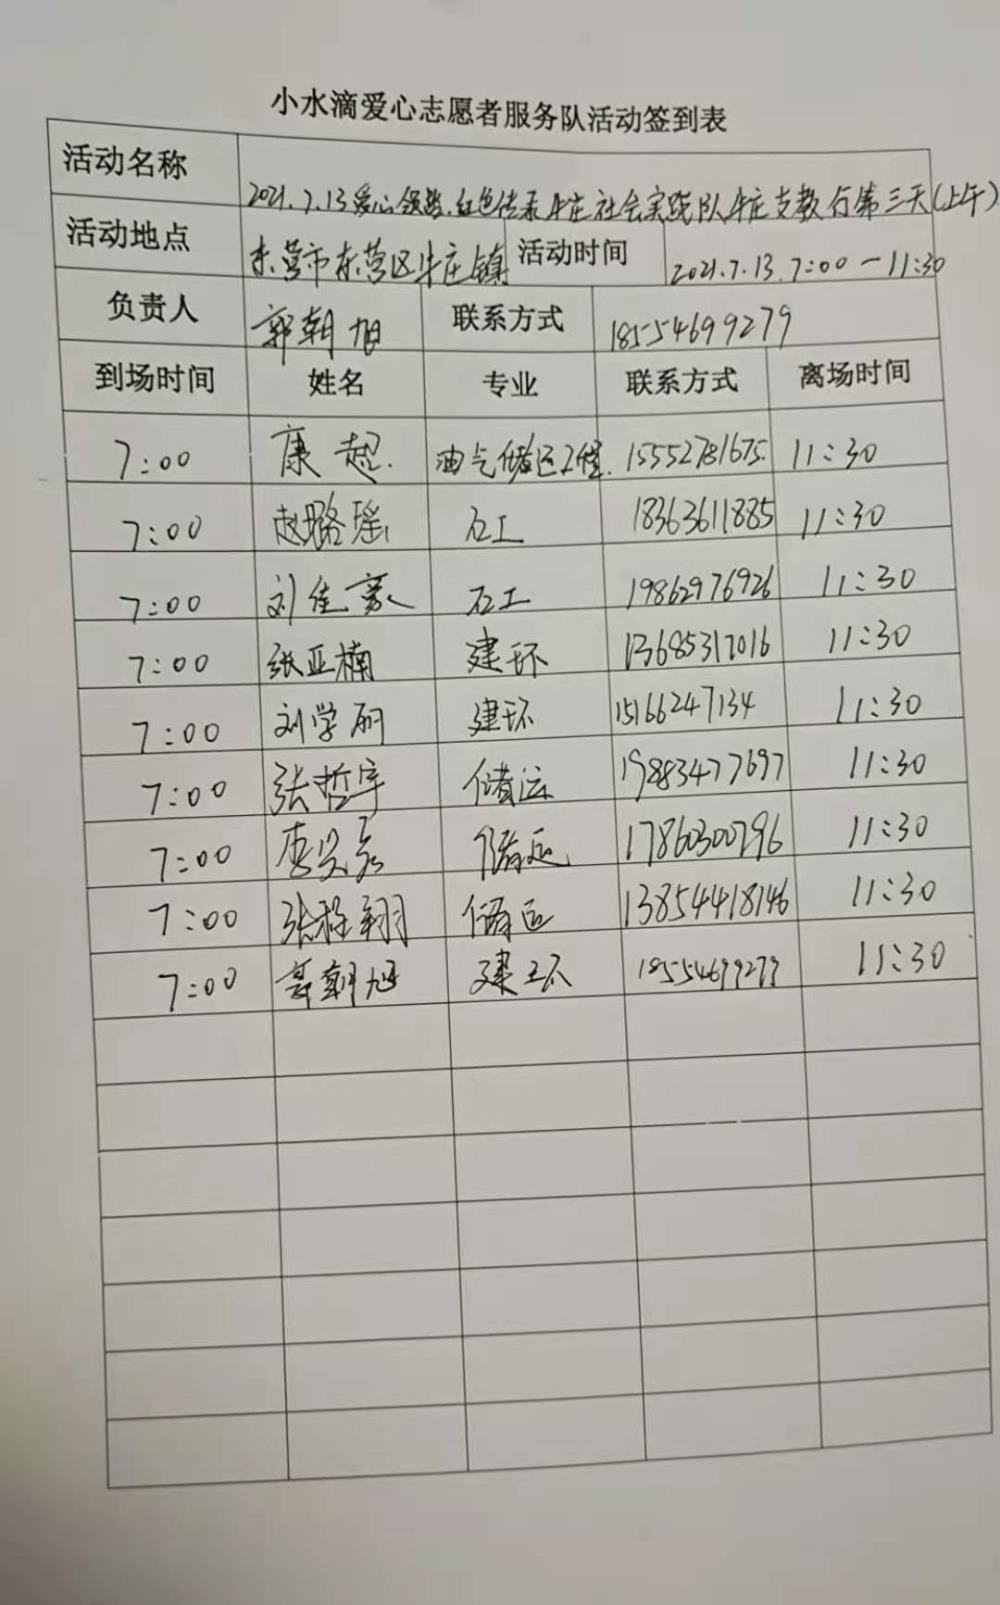 小水滴爱心志愿者服务队活动签到表
活动名称 2021.7.13爱心领路.红色传承牛庄社会实践队牛庄支教行第三天(上午)
活动地点 东营市东营区牛庄镇 活动时间 2021.7.13.7:00－11:30
负责人 郭朝旭 联系方式 18554699279
到场时间 姓名 专业 联系方式 离场时间
7:00 康超. 油气储运工程. 15552781675. 11:30
7:00 赵璐瑶 石工 18363611885 11:30
7:00 刘佳豪 石工 19862976926 11:30
7:00 张亚楠 建环 13685317016 11:30
7:00 刘学 建环 15166247134 11:30
7:00 张哲宇 储运 19883477697 11:30
7:00 储运 17860300796 11:30
7:00 张程翔 储运 13854418146 11:30
7:00 郭朝旭 建环 18554699279 11:30